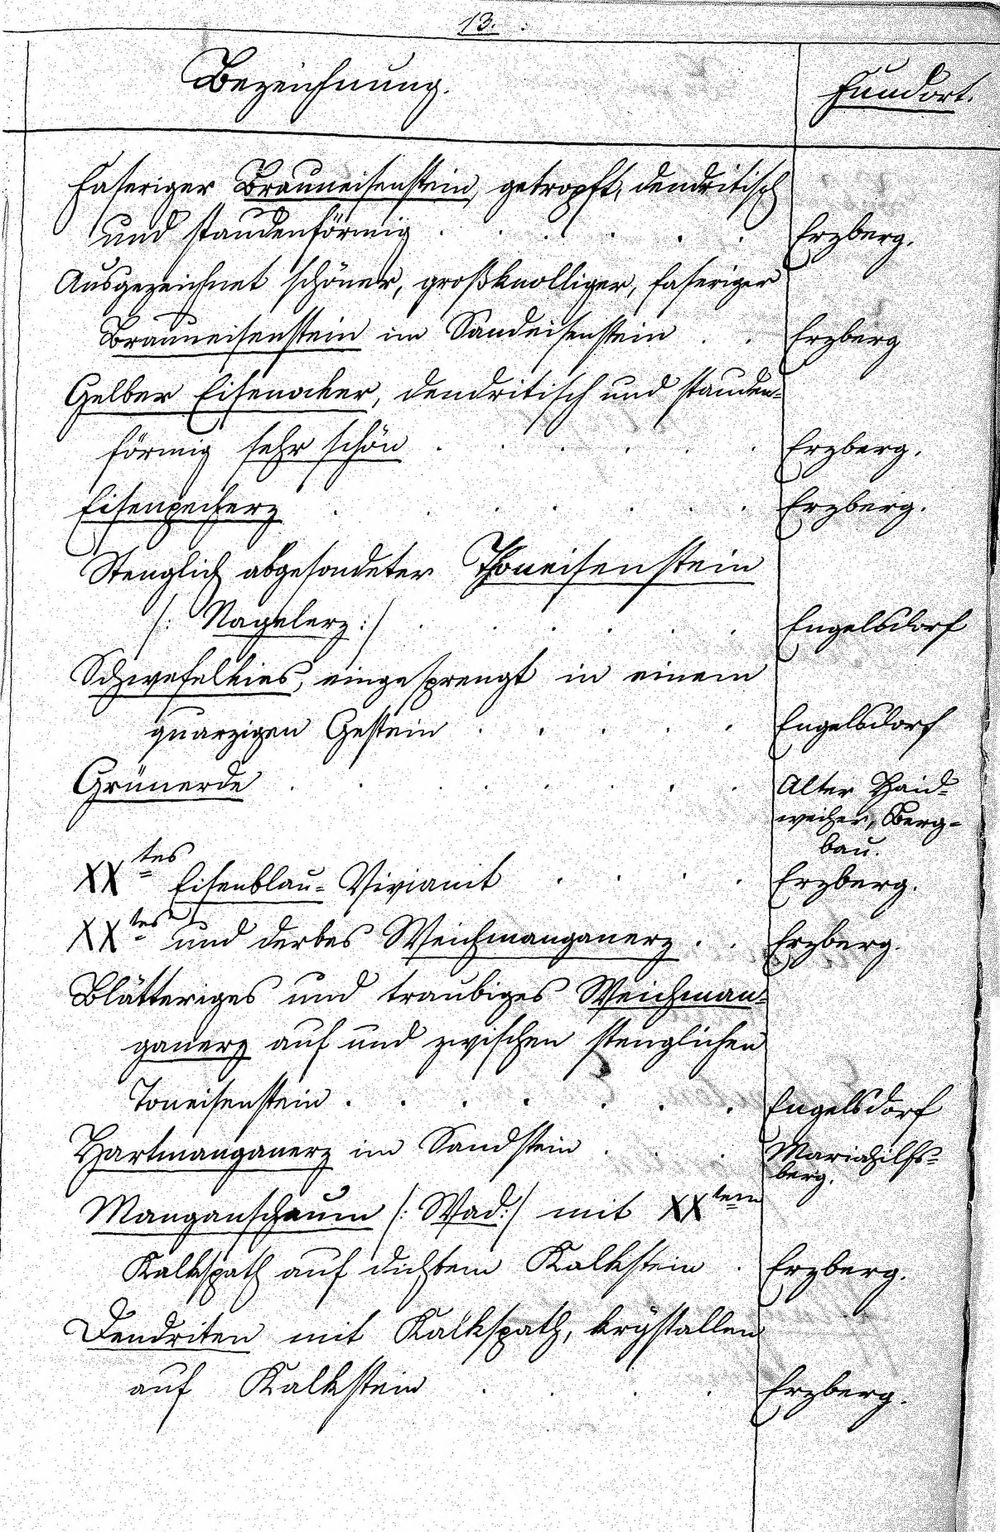 13.
Bezeichnung. Fundort.
Faseriger Brauneisenstein, getropft, dendritisch
und staudenförmig . . . . . . Erzberg.
Ausgezeichnet schöner, großknolliger, faseriger
Brauneisenstein im Sandeisenstein . . Erzberg
Gelber Eisenocker, dendritisch und stauden-
förmig sehr schön . . . . . . Erzberg.
Eisenpecherz . . . . . . Erzberg.
Stenglich abgesondeter Thoneisenstein
/: Nagelerz :/ . . . . . . Engelsdorf
Schwefelkies, eingesprengt in einem
quarzigen Gestein . . . . . Engelsdorf
Grünerde . . . . . . . Alter Haid-
weiher, Berg-
bau.
XXtes Eisenblau- Vivianit . . . . Erzberg.
XXtes und derbes Weichmanganerz . . Erzberg.
Blätteriges und traubiges Weichman-
ganerz auf und zwischen stenglichen
Toneisenstein . . . . . . . Engelsdorf
Hartmanganerz im Sandstein . . . Mariahilfs-
berg.
Manganschaum /: Wad :/ mit XXtem
Kalkspath auf dichtem Kalkstein . Erzberg.
Dendriten mit Kalkspath, krystallen
auf Kalkstein . . . . . Erzberg.